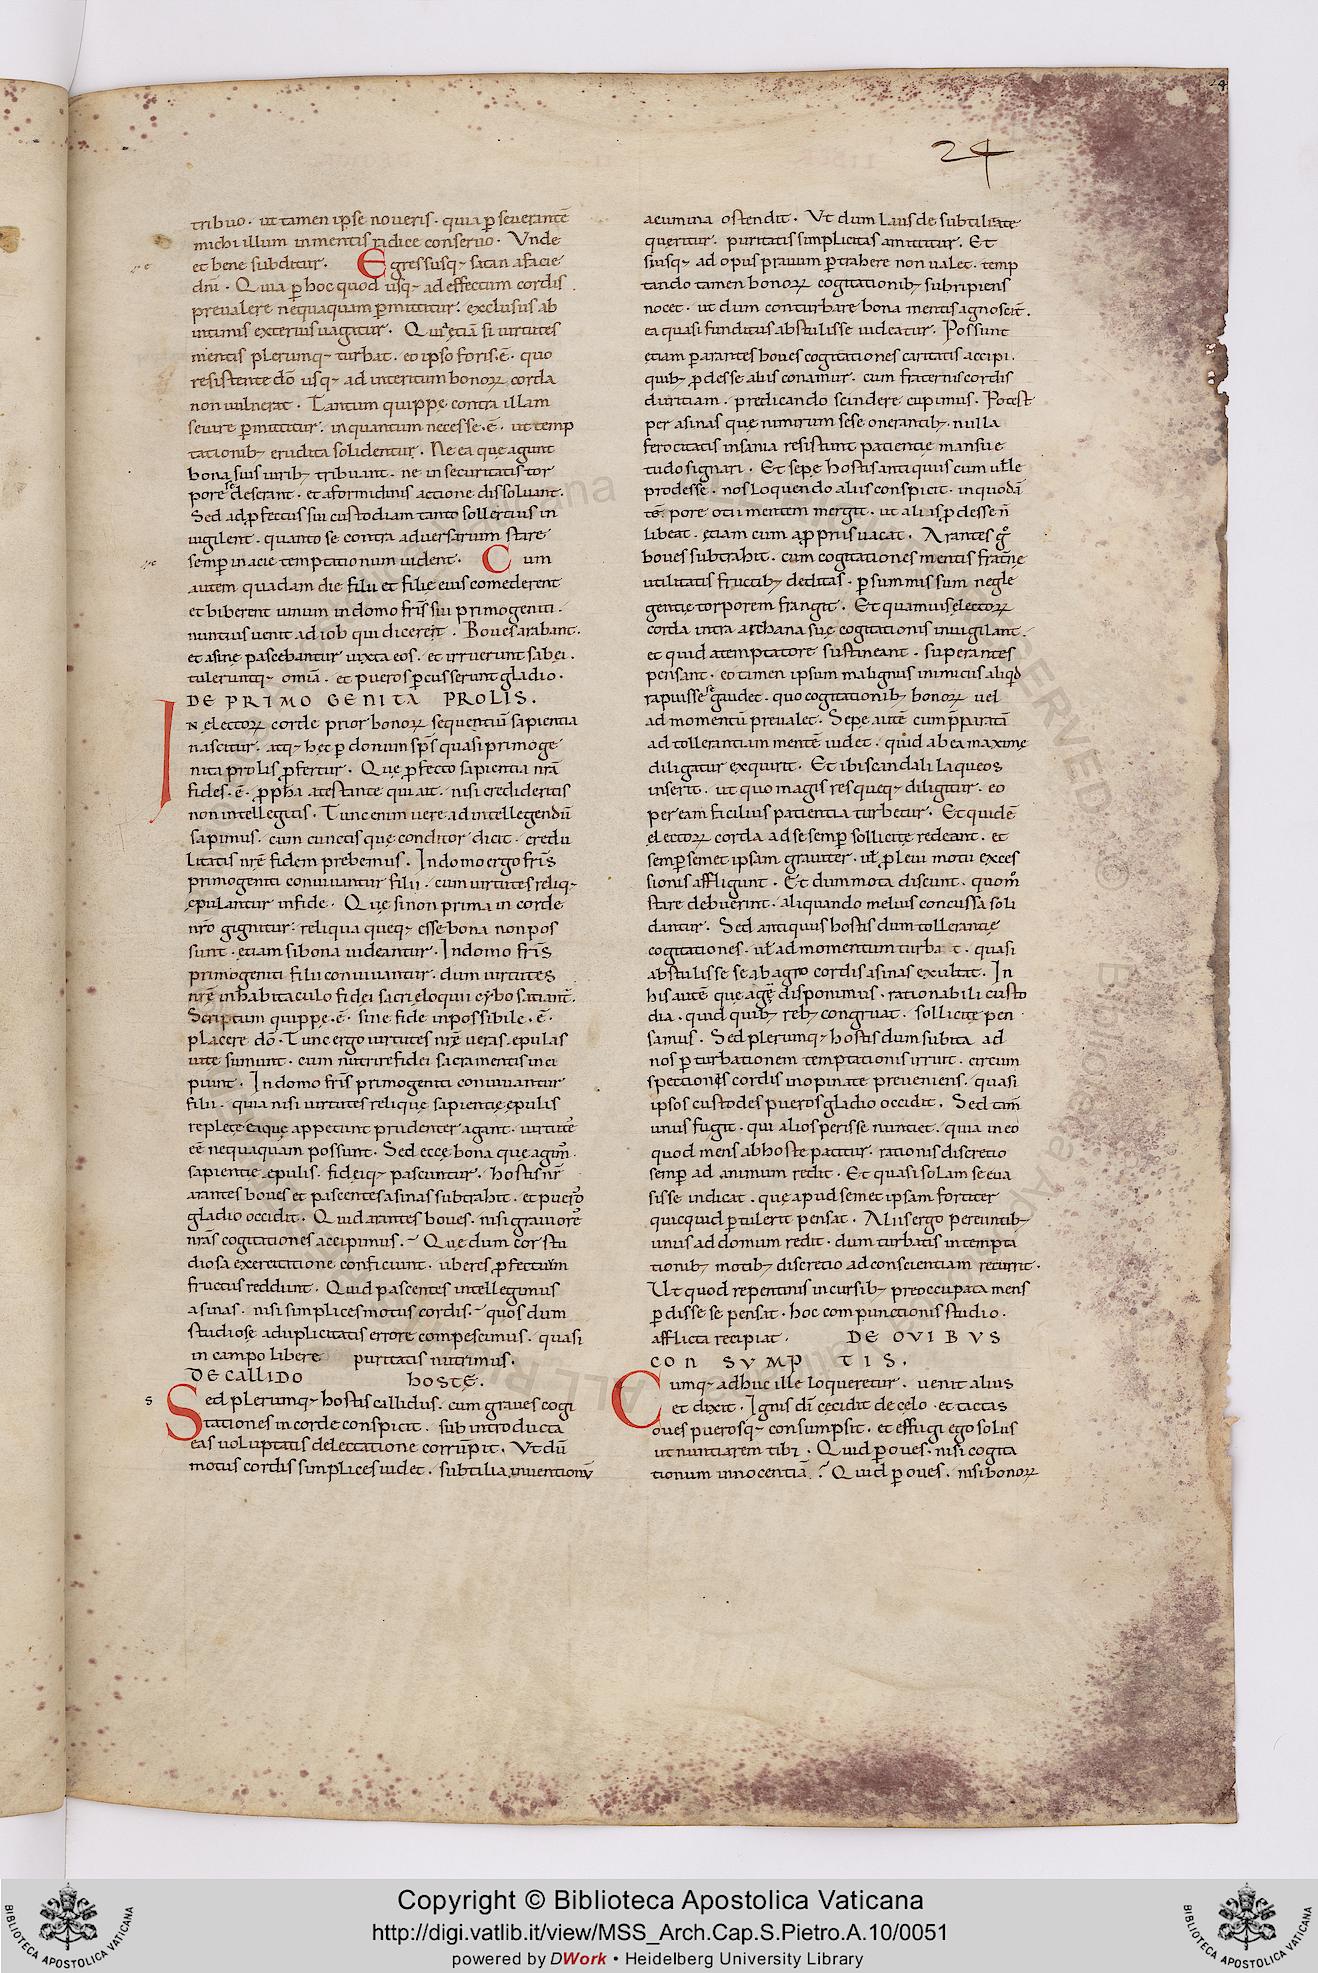 24
tribuo · ut tamen ipse noueris · quia p̄seuerantē
michi illum in mentis radice conseruo · Vnde
et bene subditur · Egressusq; satan a facie
dn̄i · Quia p̄ hoc quod usq; ad effectum cordis
preualere nequaquam p̄mittitur · exclusus ab
intimis exterius uagatur · Qui etiā si uirtutes
mentis plerumq; turbat · eo ipso foris ē · quo
resistente dō usq; ad interitum bonoꝝ corda
non uulnerat · Tantum quippe contra illam
seuire p̄mittitur · inquantum necesse ē · ut temp
tationib; erudita solidentur · Ne ea que agunt
bona suis uirib; tribuant · ne in securitatis tor
pore se deserant · et a formidinis accione dissoluant ·
Sed ad p̄fectus sui custodiam tanto sollertius in
uigilent · quanto se contra aduersarium stare
semp̄ in acie temptationum uident · Cum
autem quadam die filii et filię eius comederent
et biberent uinum in domo fr̄is sui primogeniti ·
nuntius uenit ad iob qui diceret · Boues arabant ·
et asinę pascebantur iuxta eos · et irruerunt sabei ·
tuleruntq; omīa · et pueros p̄cusserunt gladio ·
DE PRIMO GENITA PROLIS ·
IN electoꝝ corde prior bonoꝝ sequentiū sapientia
nascitur · atq; hęc p̄ donum sp̄s quasi primoge
nita prolis p̄fertur · Quę p̄fecto sapientia nr̄a
fides ē · p̄pha atestante qui ait · nisi credideritis
non intellegitis · Tunc enim uere ad intellegendū
sapimus · cum cunctis quę conditor dicit · credu
litatis nr̄ę fidem prebemus · In domo ergo fr̄is
primogeniti conuiuantur filii · cum uirtutes reliq;
ępulantur in fide · Quę si non prima in corde
nr̄o gignitur · reliqua queq; esse bona non pos
sunt · etiam si bona uideantur · In domo fr̄is
primogeniti filii conuiuantur · dum uirtutes
nr̄ę in habitaculo fidei sacri eloquii cybo satiant̄ ·
Scriptum quippe ē · sine fide inpossibile ē ·
placere dō · Tunc ergo uirtutes nr̄ę ueras epulas
uite sumunt · cum nutriri fidei sacramentis inci
piunt · In domo fr̄is primogeniti conuiuantur
filii · quia nisi uirtutes relique sapientię ępulis
repletę ea quę appetunt prudenter agant · uirtutē
eē nequaquam possunt · Sed ecce bona quę agim᷒
sapientię epulis · fideiq; pascuntur · hostis nr̄
arantes boues et pascentes asinas subtrahit · et pueros
gladio occidit · Quid arantes boues · nisi grauiorē
nr̄as cogitationes accipimus · Quę dum cor stu
diosa exercitatione conficiunt · uberes p̄fectuum
fructus reddunt · Quid pascentes intellegimus
asinas · nisi simplices motus cordis · quos dum
studiose a duplicitatis errore compescimus · quasi
in campo libere puritatis nutrimus ·
DE CALLIDO HOSTE ·
Sed plerumq; hostis callidus · cum graues cogi
tationes in corde conspicit · sub introducta
eas uoluptatis delectatione corrumpit · Vt dū
motus cordis simplices uidet · subtilia inuentionū
acumina ostendit · Vt dum laus de subtilitate
queritur · puritatis simplicitas amittitur · Et
si usq; ad opus prauum p̄trahere non ualet · temp
tando tamen bonoꝝ cogitationib; subripiens
nocet · ut dum conturbare bona mentis agnoscit̄ ·
ea quasi funditus abstulisse uideatur · Possunt
etiam p̄ arantes boues cogitationes caritatis accipi ·
quib; p̄desse aliis conamur · cum fraterni cordis
duritiam · predicando scindere cupimus · Potest
per asinas quę nimirum sese onerantib; nulla
ferocitatis insania resistunt patientie mansue
tudo signari · Et sepe hostis antiquus cum uelle
prodesse · nos loquendo aliis conspicit · in quodā
tor pore otii mentem mergit · ut aliis p̄desse ñ
libeat · etiam cum a p̄priis uacat · Arantes g̊
boues subtrahit · cum cogitationes mentis frat̄ne
utilitatis fructib; deditas · p̄ summissum negle
gentię torporem frangit · Et quamuis electoꝝ
corda intra archana suę cogitationis inuigilant ·
et quid a temptatore sustineant · superantes
pensant · eo tamen ipsum malignus inimicus aliqd
rapuisse se gaudet · quo cogitationib; bonoꝝ uel
ad momentū preualet · Sepe autē cum p̄paratā
ad tollerantiam mentē uidet · quid ab ea maxime
diligatur exquirit · Et ibi scandali laqueos
inserit · ut quo magis res queq; diligitur · eo
per eam facilius patientia turbetur · Et quidē
electoꝝ corda ad se semp̄ sollicite redeant · et
semp̄ semet ipsam grauiter · ul̄ p̄ leui motu exces
sionis affligunt · Et dum mota discunt · quom̊
stare debuerint · aliquando melius concussa soli
dantur · Sed antiquus hostis dum tollerantię
cogitationes · ul̄ ad momentum turbat · quasi
abstulisse se ab agro cordis asinas exultat · In
his autē quę agere disponimus · rationabili custo
dia · quid quib; reb; congruat · sollicite pen
samus · Sed plerumq; hostis dum subita ad
nos p̄turbationem temptationis irruit · circum
spectiones cordis inopinate preueniens · quasi
ipsos custodes pueros gladio occidit · Sed tam̄
unus fugit · qui alios perisse nuntiet · quia in eo
quod mens ab hoste patitur · rationis discretio
semp̄ ad animum redit · Et quasi solam se eua
sisse indicat · quę apud semet ipsam fortiter
quicquid p̄tulerit pensat · Aliis ergo pereuntib;
unus ad domum redit · dum turbatis in tempta
tionib; motib; discretio ad conscientiam recurrit ·
Ut quod repentinis incursib; preoccupata mens
p̄disse se pensat · hoc compunctionis studio ·
afflicta recipiat · DE OVIBVS
CONSVMPTIS ·
Cumq; adhuc ille loqueretur · uenit alius
et dixit · Ignis dī cecidit de celo · et tactas
oues puerosq; consumpsit · et effugi ego solus
ut nuntiarem tibi · Quid p̄ oues · nisi cogita
tionum innocentiā · Quid p̄ oues · nisi bonoꝝ
Copyright © Biblioteca Apostolica Vaticana
http://digi.vatlib.it/view/MSS_Arch.Cap.S.Pietro.A.10/0051
powered by DWork • Heidelberg University Library
BIBLIOTECA APOSTOLICA VATICANA
BIBLIOTECA APOSTOLICA VATICANA